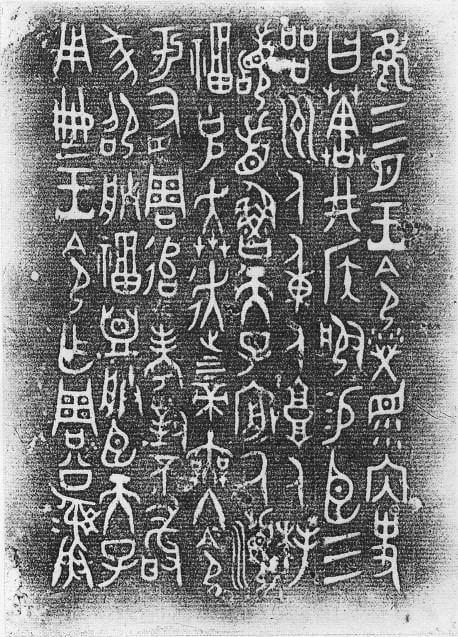 隹三月王令榮眔內史
曰𦶗井侯服易臣三
品州人重人庸人拜
稽首魯天子𡩜厥瀕
福克奔走上下帝無冬令
于右周追考對不敢
㒸邵朕福血朕臣天子
用典王令乍周公彝